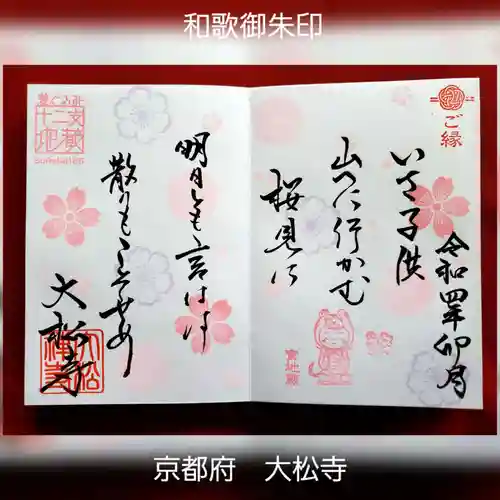 和歌御朱印
ご縁
令和四年卯月
いさ子供
山へに行かむ
桜見に
明日とも言はは
散りもこそせめ
大松寺
大松禅寺
京都府　大松寺